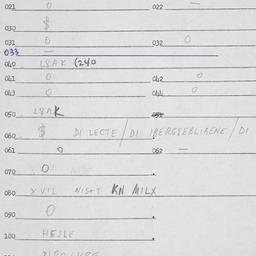 021 0 022 —
030 $
031 0 032 0
033 —
040 LSAK (240
041 0 042 0
043 0 044 0
050 LSAK
060 $ DI LECTE / DI IBERGSEBLIRENE / DI
061 0 062 —
070 01
080 XVIL NISHT KN MILX
090 0
100 HESLE